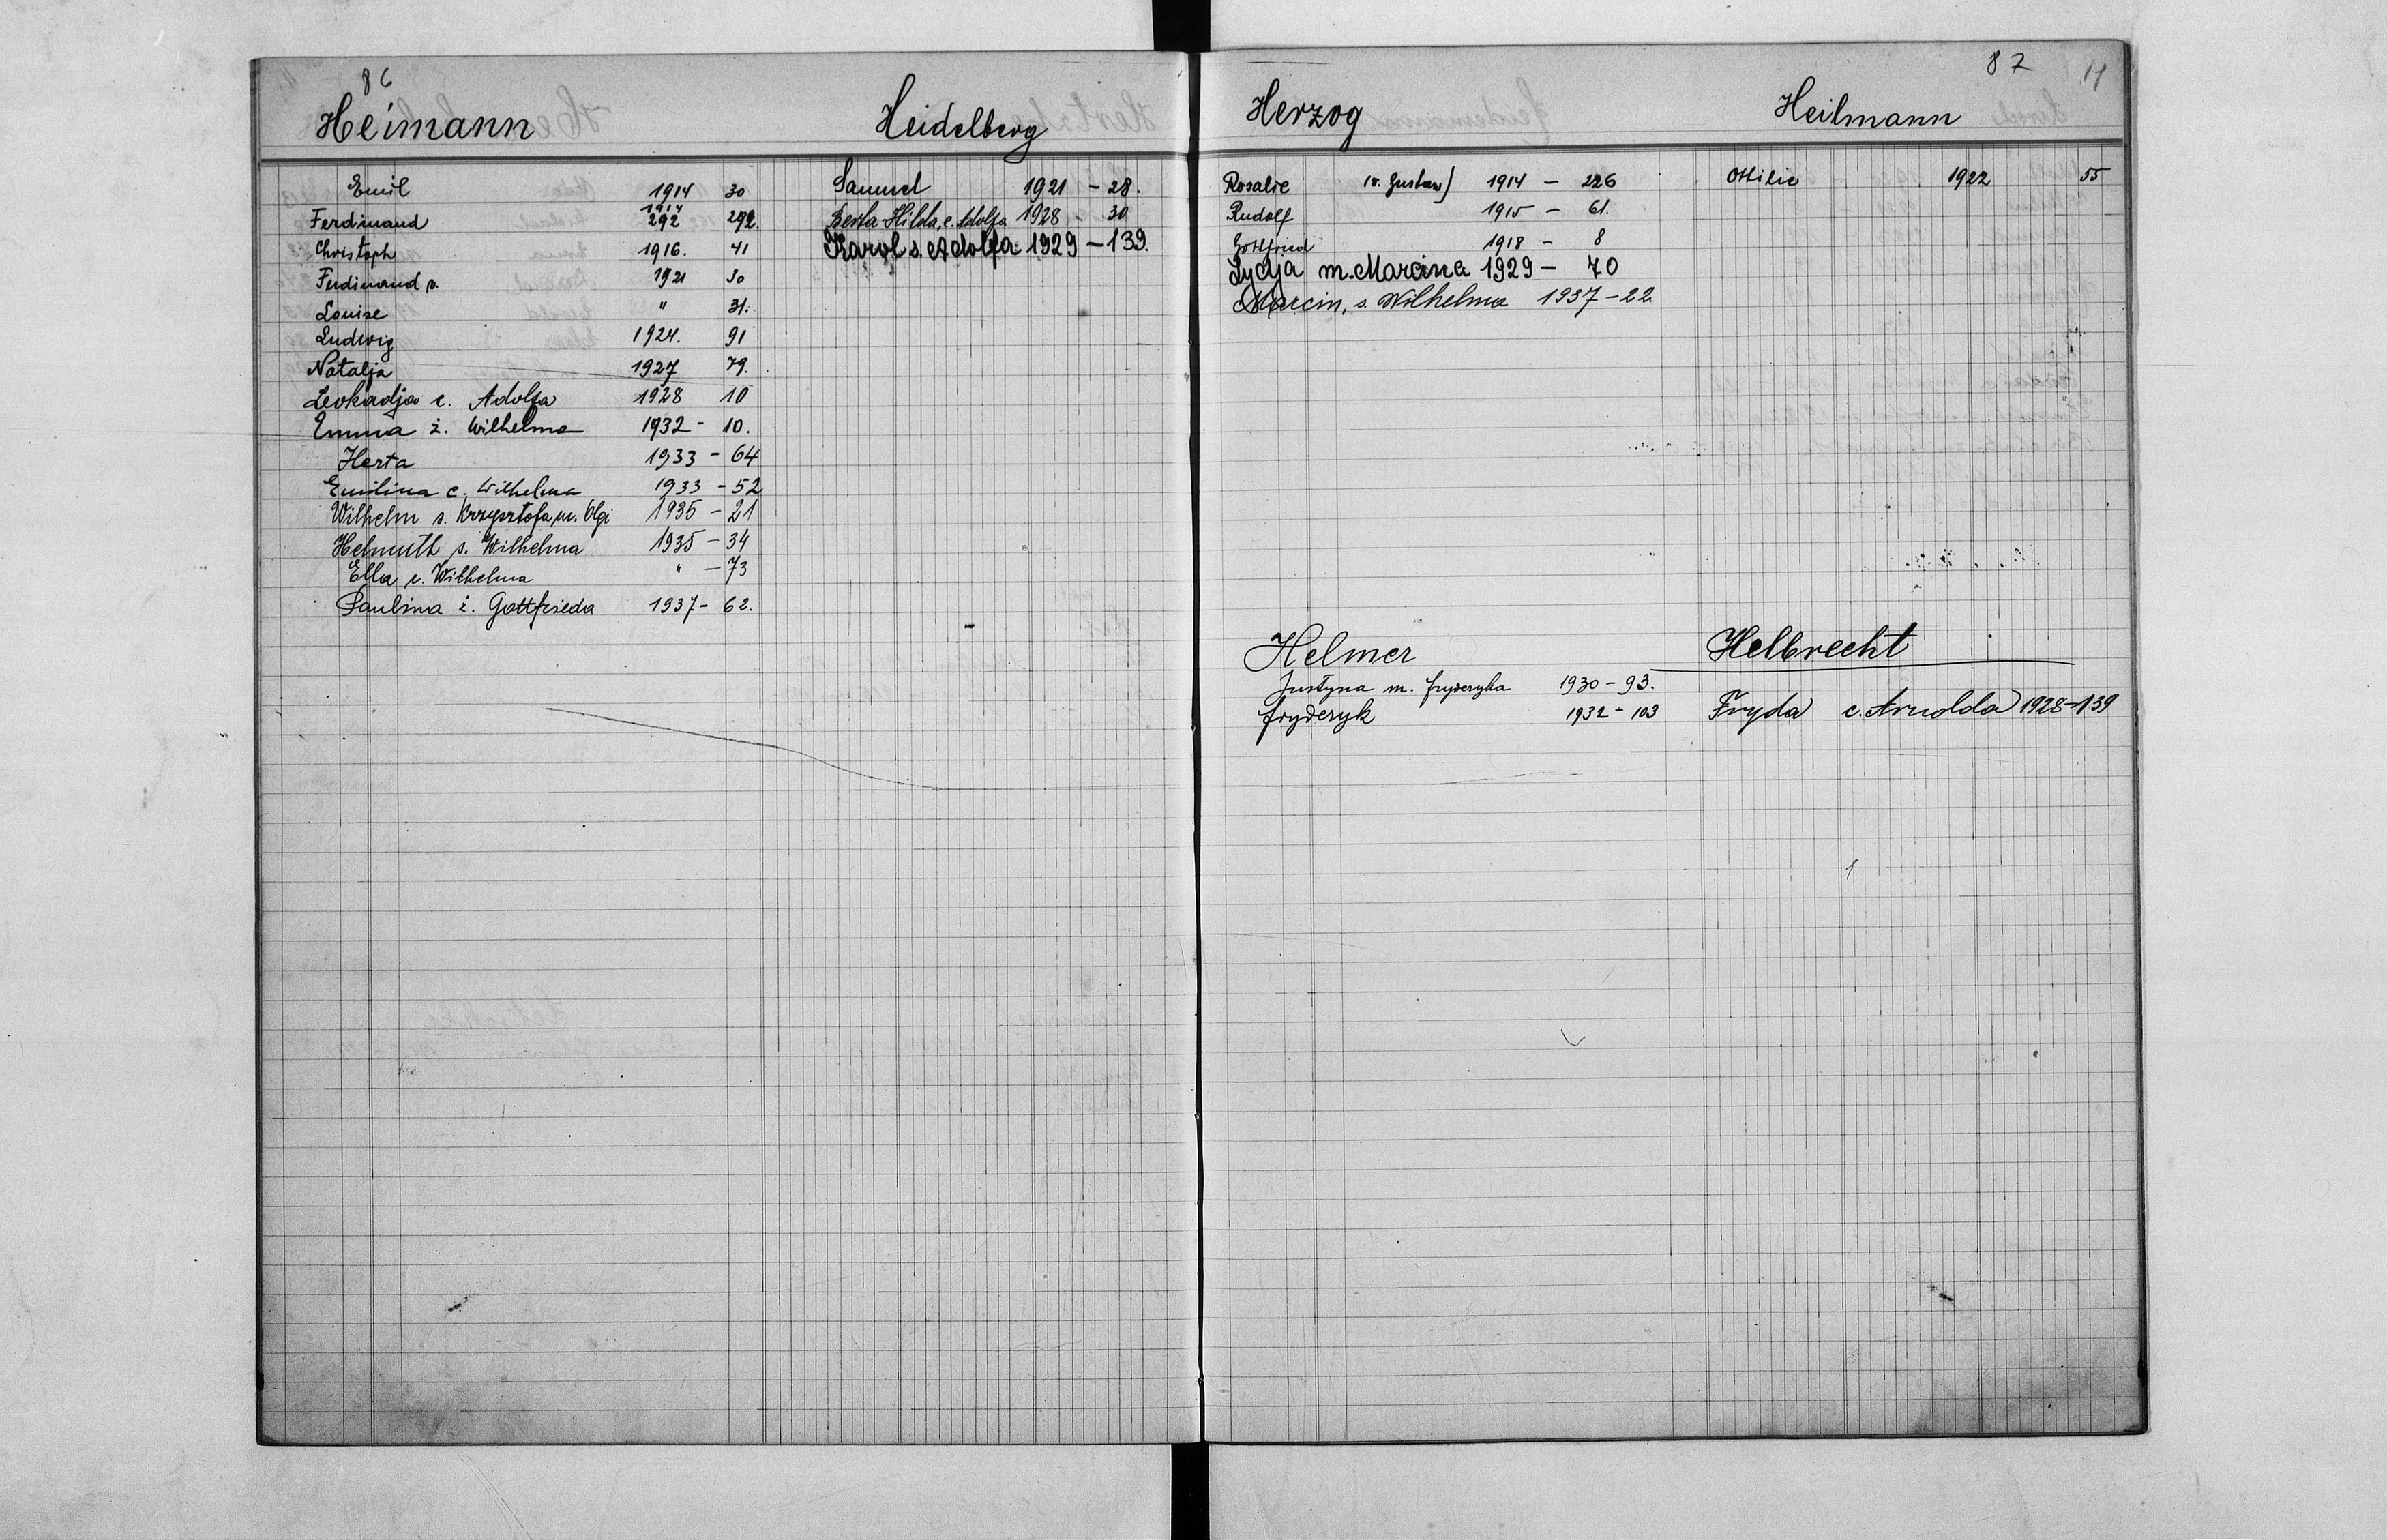 86
Heimann
Emil 1914 30
Ferdinand 1914 292 292.
Christoph 1916. 41
Ferdinand v. 1921 30
Louise " 31.
Ludwig 1924. 91
Natalja 1927 79.
Leokadja c. Adolfa 1928 10
Emma ż. Wilhelma 1932 - 10.
Herta 1933 - 64
Emilina c. Wilhelma 1933 - 52
Wilhelm s. Krzysztofa, m. Olgi 1935 - 21
Helmuth s. Wilhelma 1935 - 34
Ella c. Wilhelma " - 73
Paulina ż. Gottfrieda 1937 - 62.
Heidelberg
Samuel 1921 - 28.
Berta-Hilda, c. Adolfa 1928 - 30
Karol s. Adolfa 1929 - 139.
87 H
Herzog
Rosalie (v. Gustaw) 1914 - 226
Rudolf 1915 - 61.
Gottfried 1918 - 8
Lydja m. Marcina 1929 - 70
Marcin, s. Wilhelma 1937 - 22
Heilmann
Ottilie 1922 55
Helmer
Justyna m. Fryderyka 1930 - 93.
Fryderyk 1932 - 103
Helbrecht
Fryda c. Arnolda 1928 - 139